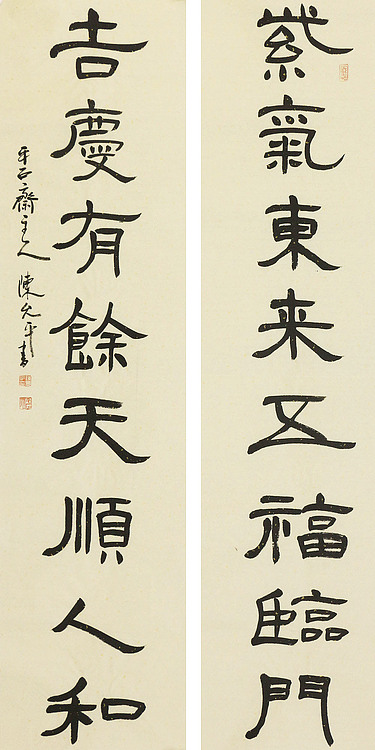 紫氣東来五福臨門
吉慶有餘天順人和
平石齋主人陳允平書